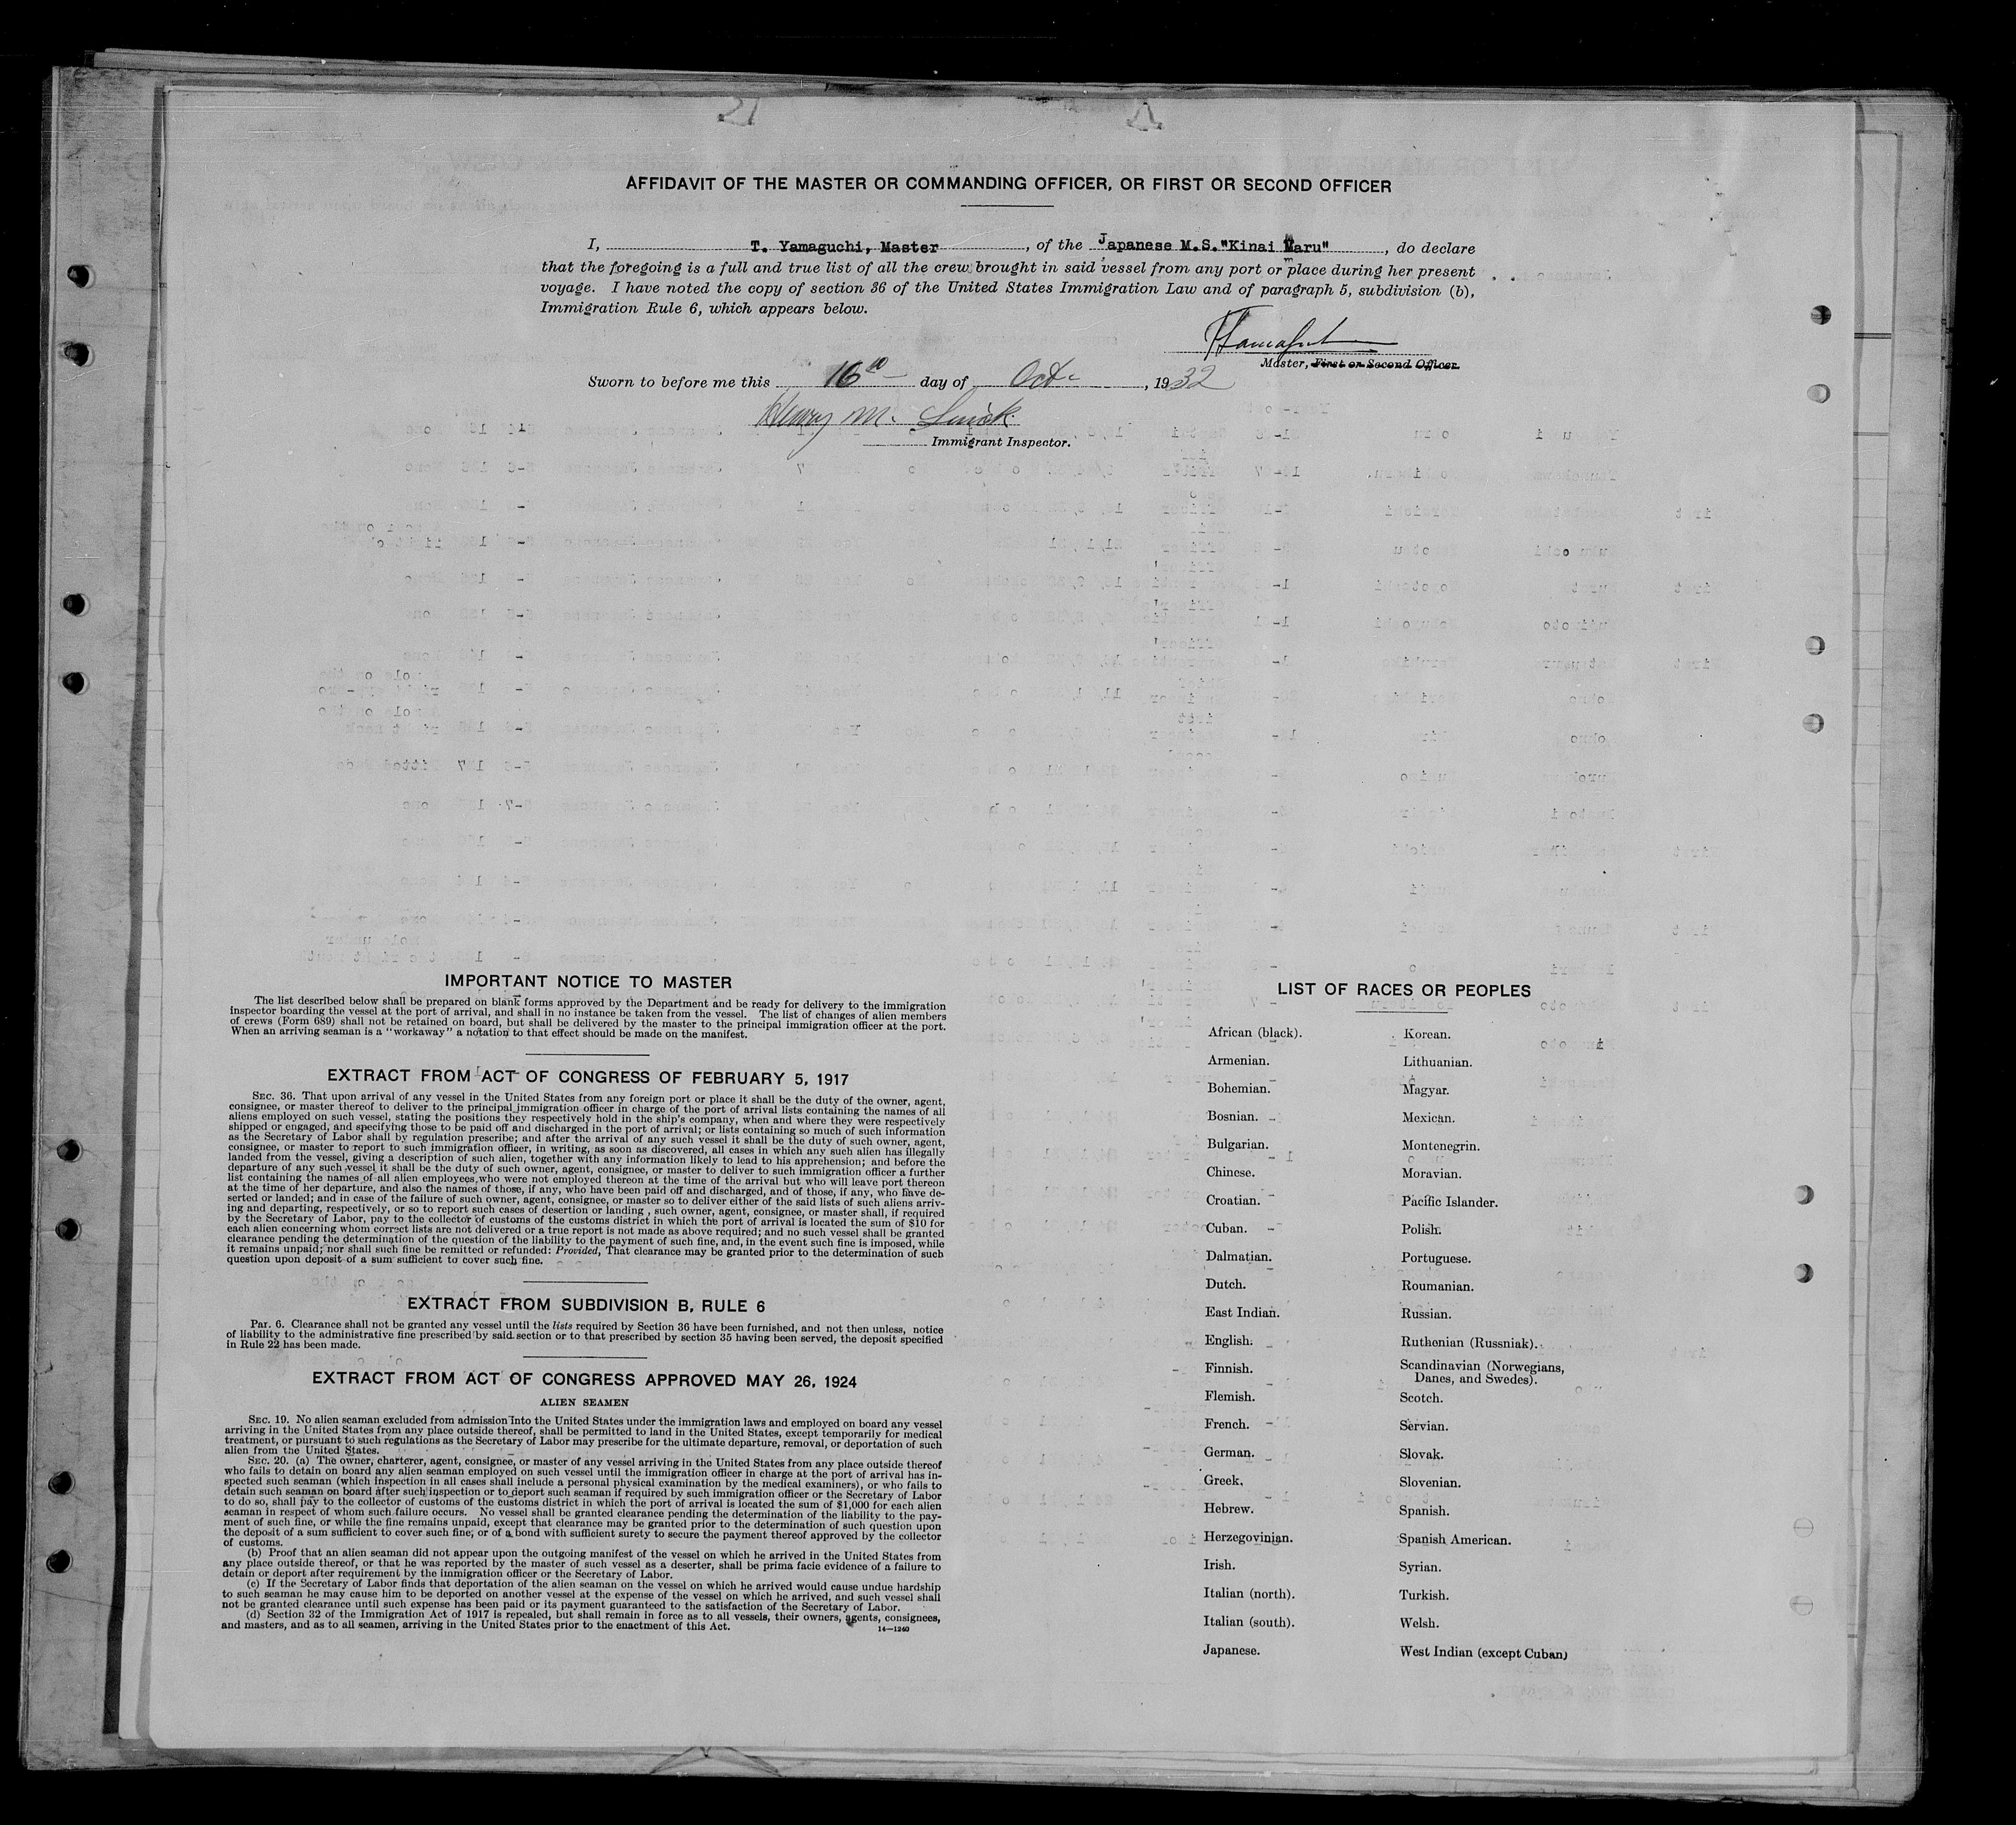 AFFIDAVIT OF THE MASTER OR COMMANDING OFFICER, OR FIRST OR SECOND OFFICER
I, T. Yamaguchi, Master, of the Japanese M.S."Kinai Maru", do declare
that the foregoing is a full and true list of all the crew brought in said vessel from any port or place during her present
voyage. I have noted the copy of section 36 of the United States Immigration Law and of paragraph 5, subdivision (b),
Immigration Rule 6, which appears below.
Master, First or Second Officer.
Sworn to before me this 16th day of Oct, 1932
Henry M.
Immigrant Inspector.
IMPORTANT NOTICE TO MASTER
The list described below shall be prepared on blank forms approved by the Department and be ready for delivery to the immigration
inspector boarding the vessel at the port of arrival, and shall in no instance be taken from the vessel. The list of changes of alien members
of crews (Form 689) shall not be retained on board, but shall be delivered by the master to the principal immigration officer at the port.
When an arriving seaman is a "workaway" a notation to that effect should be made on the manifest.
EXTRACT FROM ACT OF CONGRESS OF FEBRUARY 5, 1917
SEC. 36. That upon arrival of any vessel in the United States from any foreign port or place it shall be the duty of the owner, agent,
consignee, or master thereof to deliver to the principal immigration officer in charge of the port of arrival lists containing the names of all
aliens employed on such vessel, stating the positions they respectively hold in the ship's company, when and where they were respectively
shipped or engaged, and specifying those to be paid off and discharged in the port of arrival; or lists containing so much of such information
as the Secretary of Labor shall by regulation prescribe; and after the arrival of any such vessel it shall be the duty of such owner, agent,
consignee, or master to report to such immigration officer, in writing, as soon as discovered, all cases in which any such alien has illegally
landed from the vessel, giving a description of such alien, together with any information likely to lead to his apprehension; and before the
departure of any such vessel it shall be the duty of such owner, agent, consignee, or master to deliver to such immigration officer a further
list containing the names of all alien employees who were not employed thereon at the time of the arrival but who will leave port thereon
at the time of her departure, and also the names of those, if any, who have been paid off and discharged, and of those, if any, who have de-
serted or landed; and in case of the failure of such owner, agent, consignee, or master so to deliver either of the said lists of such aliens arriv-
ing and departing, respectively, or so to report such cases of desertion or landing , such owner, agent, consignee, or master shall, if required
by the Secretary of Labor, pay to the collector of customs of the customs district in which the port of arrival is located the sum of $10 for
each alien concerning whom correct lists are not delivered or a true report is not made as above required; and no such vessel shall be granted
clearance pending the determination of the question of the liability to the payment of such fine, and, in the event such fine is imposed, while
it remains unpaid; nor shall such fine be remitted or refunded: Provided, That clearance may be granted prior to the determination of such
question upon deposit of a sum sufficient to cover such fine.
EXTRACT FROM SUBDIVISION B, RULE 6
PAR. 6. Clearance shall not be granted any vessel until the lists required by Section 36 have been furnished, and not then unless, notice
of liability to the administrative fine prescribed by said section or to that prescribed by section 35 having been served, the deposit specified
in Rule 22 has been made.
EXTRACT FROM ACT OF CONGRESS APPROVED MAY 26, 1924
ALIEN SEAMEN
SEC. 19. No alien seaman excluded from admission into the United States under the immigration laws and employed on board any vessel
arriving in the United States from any place outside thereof, shall be permitted to land in the United States, except temporarily for medical
treatment, or pursuant to such regulations as the Secretary of Labor may prescribe for the ultimate departure, removal, or deportation of such
alien from the United States.
SEC. 20. (a) The owner, charterer, agent, consignee, or master of any vessel arriving in the United States from any place outside thereof
who fails to detain on board any alien seaman employed on such vessel until the immigration officer in charge at the port of arrival has in-
spected such seaman (which inspection in all cases shall include a personal physical examination by the medical examiners), or who fails to
detain such seaman on board after such inspection or to deport such seaman if required by such immigration officer or the Secretary of Labor
to do so, shall pay to the collector of customs of the customs district in which the port of arrival is located the sum of $1,000 for each alien
seaman in respect of whom such failure occurs. No vessel shall be granted clearance pending the determination of the liability to the pay-
ment of such fine, or while the fine remains unpaid, except that clearance may be granted prior to the determination of such question upon
the deposit of a sum sufficient to cover such fine, or of a bond with sufficient surety to secure the payment thereof approved by the collector
of customs.
(b) Proof that an alien seaman did not appear upon the outgoing manifest of the vessel on which he arrived in the United States from
any place outside thereof, or that he was reported by the master of such vessel as a deserter, shall be prima facie evidence of a failure to
detain or deport after requirement by the immigration officer or the Secretary of Labor.
(c) If the Secretary of Labor finds that deportation of the alien seaman on the vessel on which he arrived would cause undue hardship
to such seaman he may cause him to be deported on another vessel at the expense of the vessel on which he arrived, and such vessel shall
not be granted clearance until such expense has been paid or its payment guaranteed to the satisfaction of the Secretary of Labor.
(d) Section 32 of the Immigration Act of 1917 is repealed, but shall remain in force as to all vessels, their owners, agents, consignees,
and masters, and as to all seamen, arriving in the United States prior to the enactment of this Act.
14—1240
LIST OF RACES OR PEOPLES
African (black).
Armenian.
Bohemian.
Bosnian.
Bulgarian.
Chinese.
Croatian.
Cuban.
Dalmatian.
Dutch.
East Indian.
English.
Finnish.
Flemish.
French.
German.
Greek.
Hebrew.
Herzegovinian.
Irish.
Italian (north).
Italian (south).
Japanese.
Korean.
Lithuanian.
Magyar.
Mexican.
Montenegrin.
Moravian.
Pacific Islander.
Polish.
Portuguese.
Roumanian.
Russian.
Ruthenian (Russniak).
Scandinavian (Norwegians,
Danes, and Swedes).
Scotch.
Servian.
Slovak.
Slovenian.
Spanish.
Spanish American.
Syrian.
Turkish.
Welsh.
West Indian (except Cuban)